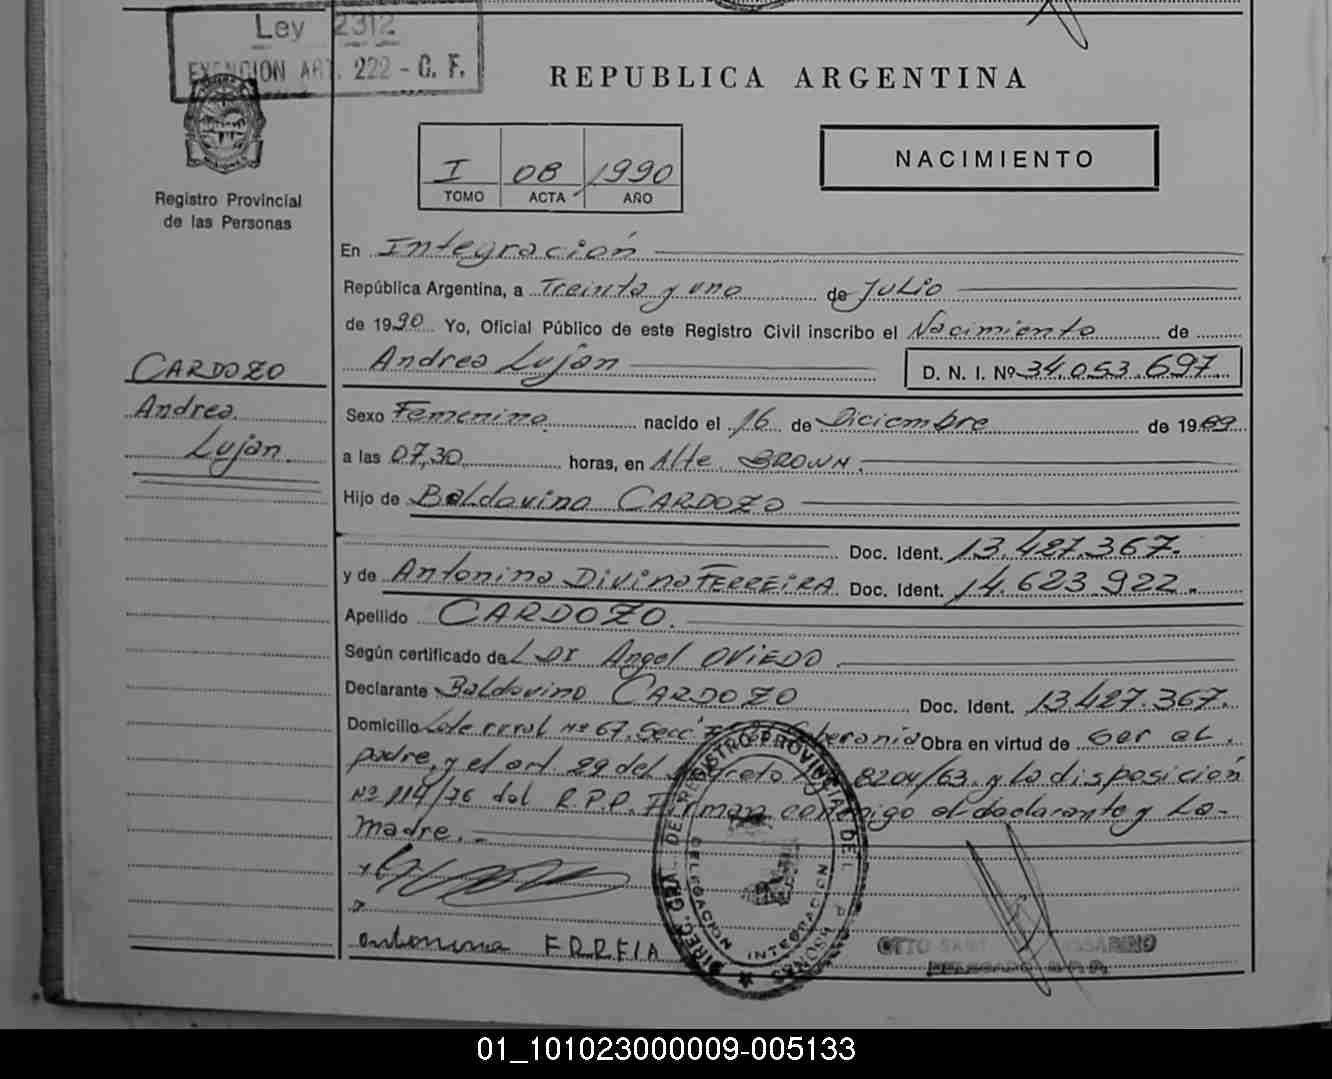 Ley 2312
EXENCION ART. 222 - C. F.
REPUBLICA ARGENTINA
I 08 1990
TOMO ACTA AÑO
NACIMIENTO
Registro Provincial
de las Personas
En Integración
República Argentina, a Treinta y uno de Julio
de 1990 Yo, Oficial Público de este Registro Civil inscribo el Nacimiento de
Andrea Luján
D. N. I. Nº 34.053.697
CARDOZO
Andrea
Luján.
Sexo Femenino nacido el 16 de Diciembre de 1989
a las 07,30 horas, en Alte BROWN.
Hijo de Baldovino CARDOZO
Doc. Ident. 13.427.367.
y de Antonina Divina FERREIRA Doc. Ident. 14.623.922.
Apellido CARDOZO.
Según certificado de Angel OVIEDO
Declarante Baldovino CARDOZO Doc. Ident. 13.427.367.
Domicilio Lote rural Nº 67. Secc Obra en virtud de ser el
padre, y el art 29 del Decreto 8204/63. y la disposición
Nº 114/76 del R.P.P. Firman conmigo el declarante y la
madre.
antonina FRREIA
DIREC. GRAL. DEL REGISTRO PROVINCIAL DE
DELEGACION INTEGRACION
OTTO
01_101023000009-005133